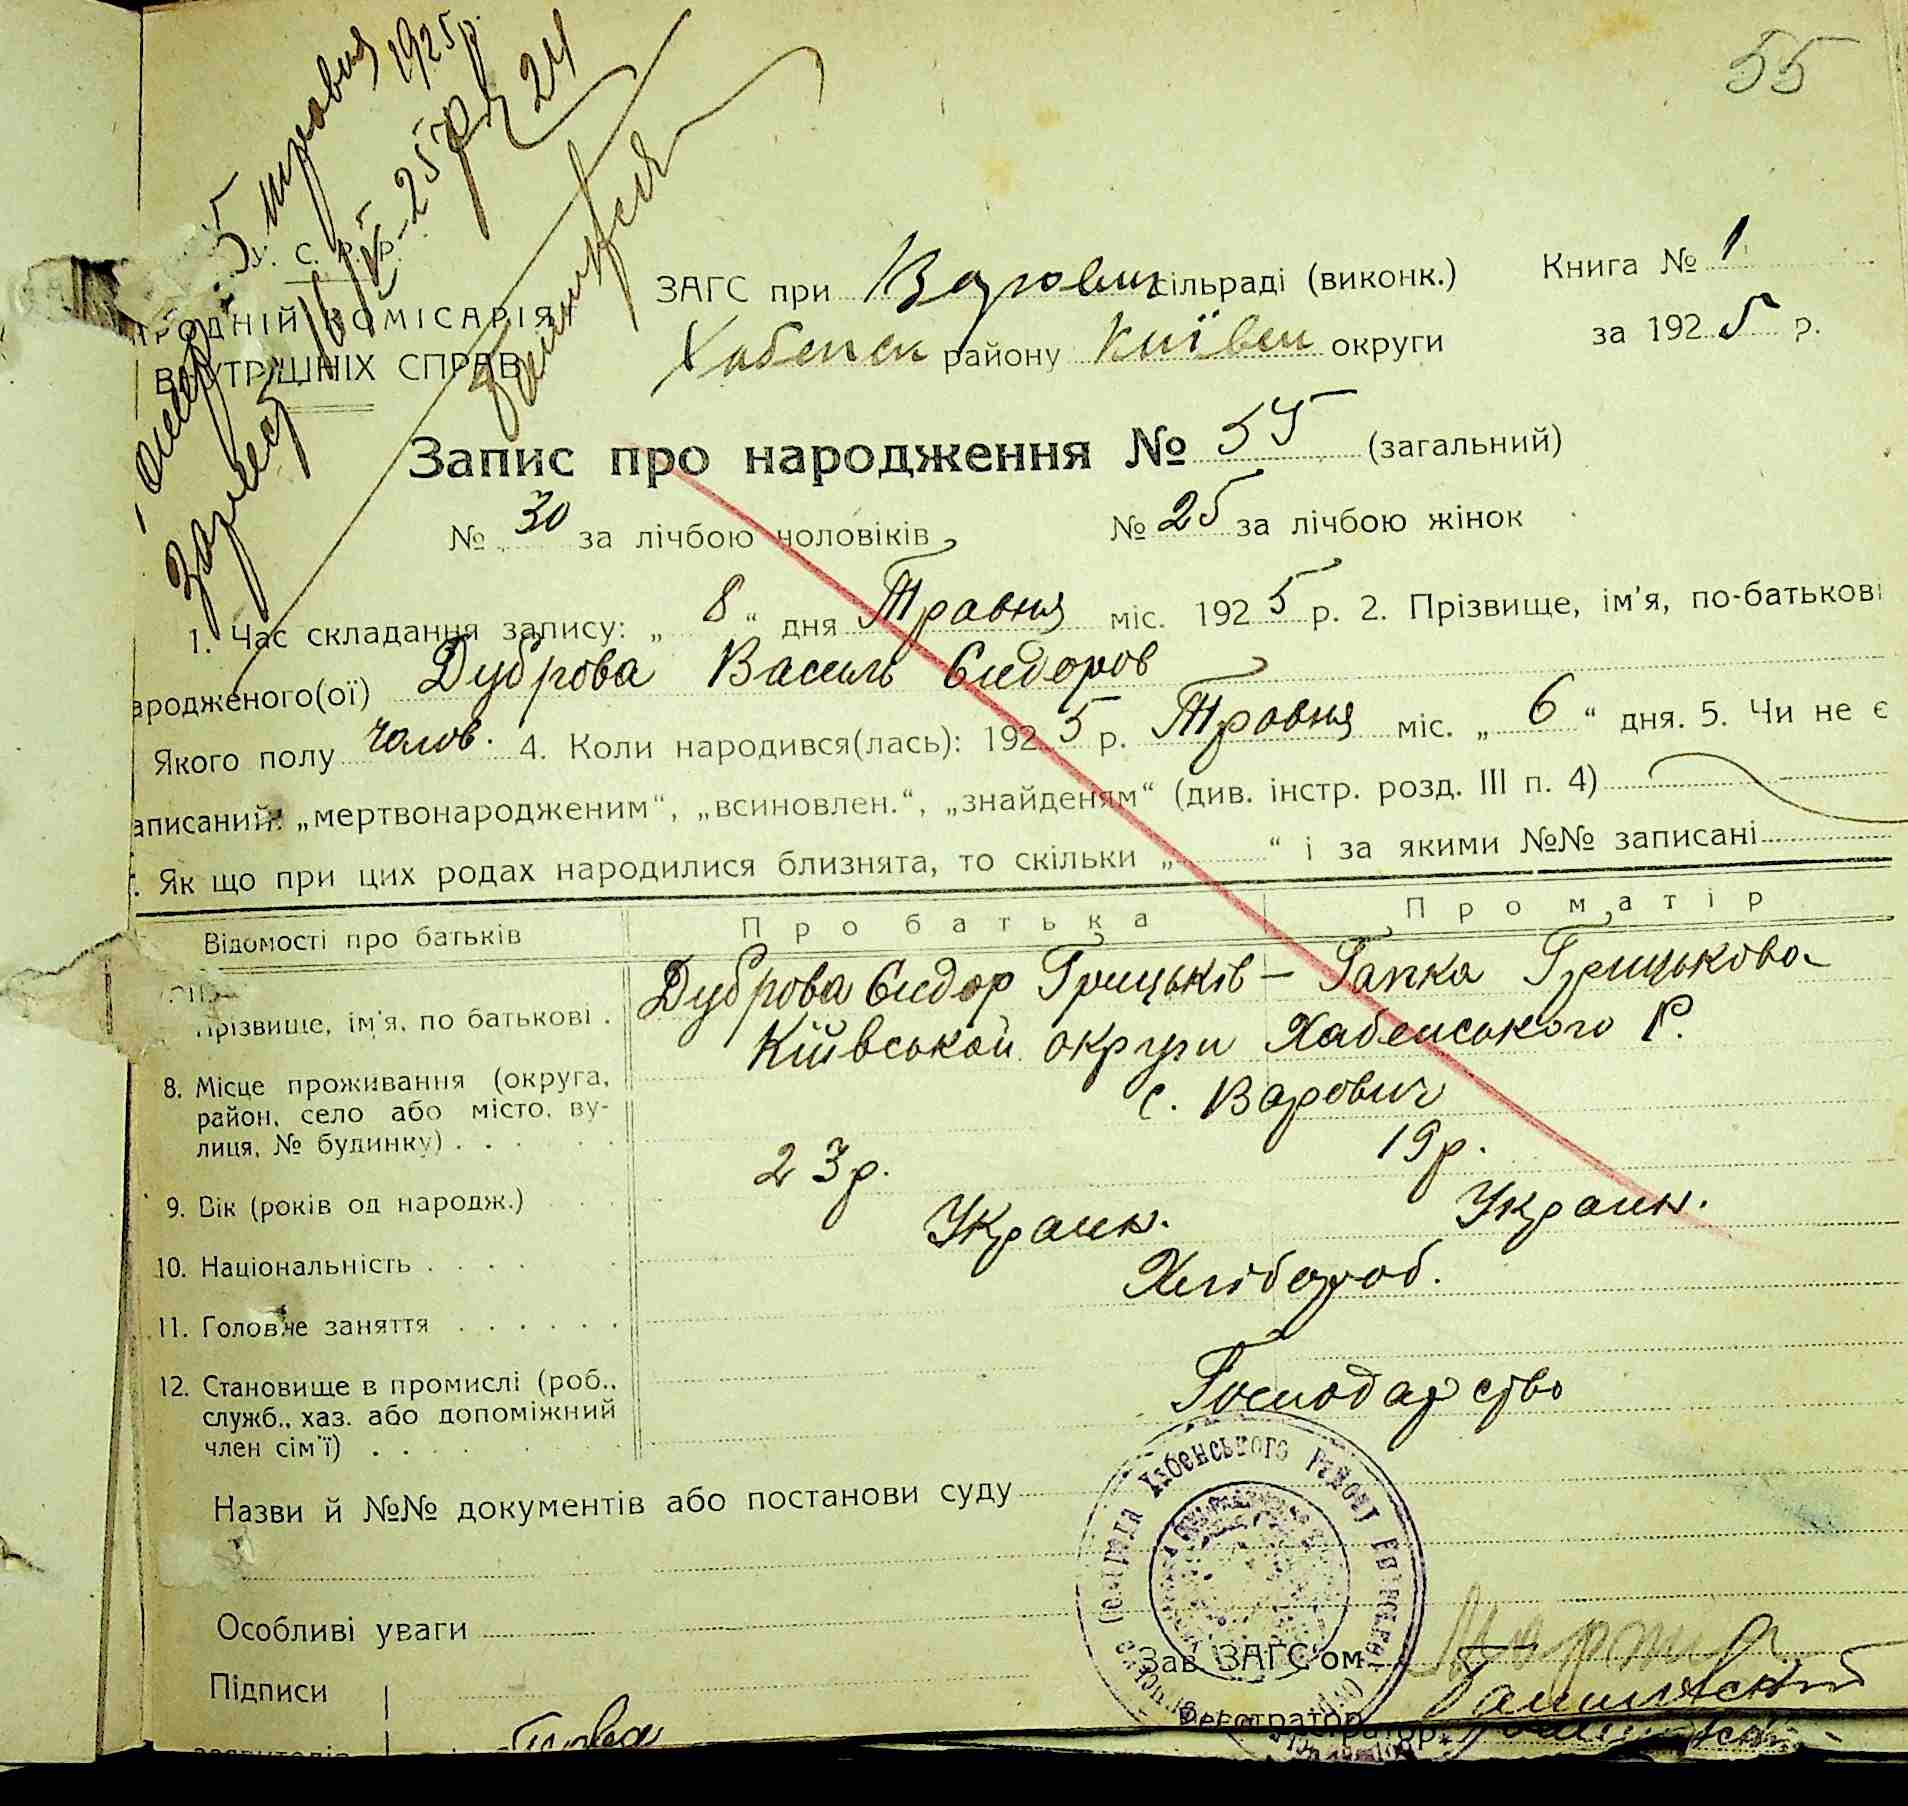 55
5 травня 1925 р.
16/V-25 р. 24
У. С. Р. Р.
РОДНІЙ КОМІСАРІЯТ
ВНУТРІШНІХ СПРАВ
ЗАГС при Варович сільраді (виконк.) Книга № 1
Хабенск району Київск округи за 1925 р.
Запис про народження № 55 (загальний)
№ 30 за лічбою чоловіків, № 25 за лічбою жінок
1. Час складання запису: „ 8 “ дня Травня міс. 1925 р. 2. Прізвище, ім’я, по-батькові
ародженого(ої) Дуброва Василь Сидоров
Якого полу чолов. 4. Коли народився(лась): 1925 р. Травня міс. „ 6 “ дня. 5. Чи не є
аписаний: „мертвонародженим“, „всиновлен.“, „знайденям“ (див. інстр. розд. III п. 4)
. Як що при цих родах народилися близнята, то скільки „ “ і за якими №№ записані
Відомості про батьків Про батька Про матір
Прізвище, ім’я, по батькові . Дуброва Сидор Грицьків — Гапка Грицькова
8. Місце проживання (округа, район, село або місто, ву-лиця, № будинку) . . . Київськой округи Хабенського Р.
с. Варович
9. Вік (років од народж.) 23 р. 19 р.
10. Національність . . . . Украин. Украин.
11. Головне заняття . . . . . . Хлібороб.
12. Становище в промислі (роб., служб., хаз. або допоміжний член сім’ї) . . Господарство
Назви й №№ документів або постанови суду
Особливі уваги
Зав ЗАГС’ом
Підписи
Регстратор
заявителів